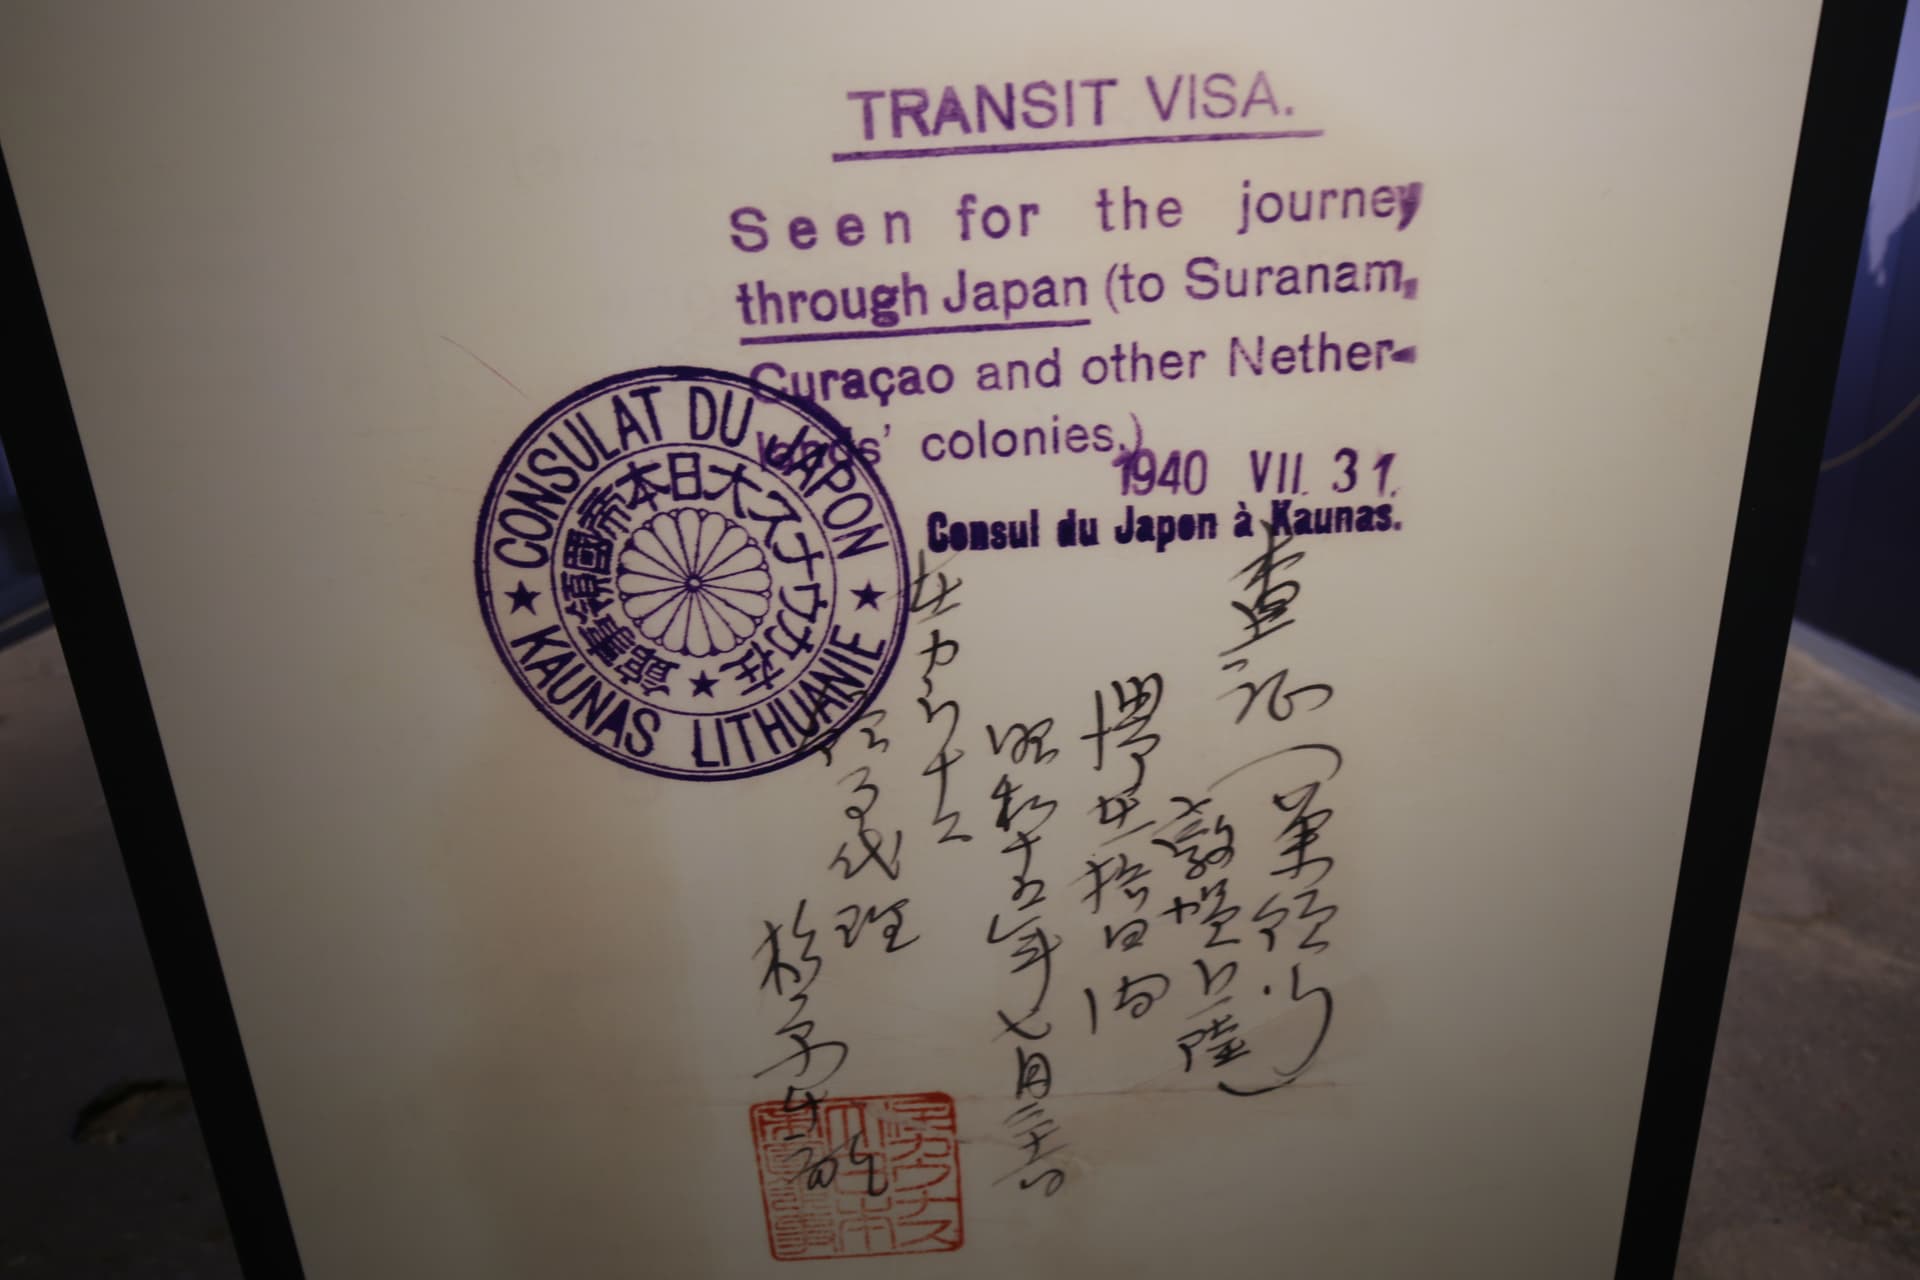 TRANSIT VISA.
Seen for the journey
through Japan (to Suranam,
Curaçao and other Nether-
lands' colonies.)
1940 VII. 31.
Consul du Japon à Kaunas.
CONSULAT DU JAPON
KAUNAS LITHUANIE
在カウナス大日本帝國領事館
査証
敦賀上陸
滞在拾日間
昭和十五年七月三十一日
在カウナス
領事代理
杉原千畝